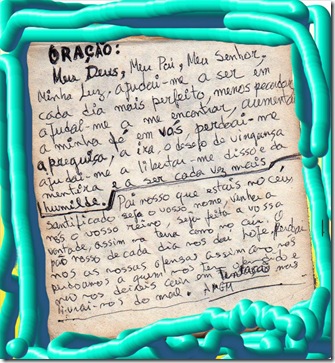 ORAÇÃO:
Meu Deus, Meu Pai, Meu Senhor.
Minha Luz. ajudai-me a ser em
cada dia mais perfeito, menos pecador
ajudai-me a me encontrar, aumentai
a minha fé em vós, perdoai-me
a preguiça, a ira, o desejo de vingança
ajudai-me a libertar-me disso e da
mentira e a ser cada vez mais
humilde. Pai nosso que estais no céu,
santificado seja o vosso nome, venha a
nós o vosso reino, seja feita a vossa
vontade, assim na terra como no céu. O
pão nosso de cada dia nos dai hoje, Perdoai
nos as nossas ofensas assim como nós
perdoamos a quem nos tem ofendido e
não nos deixais cair em Tentação mas
livrai-nos do mal. AMEM